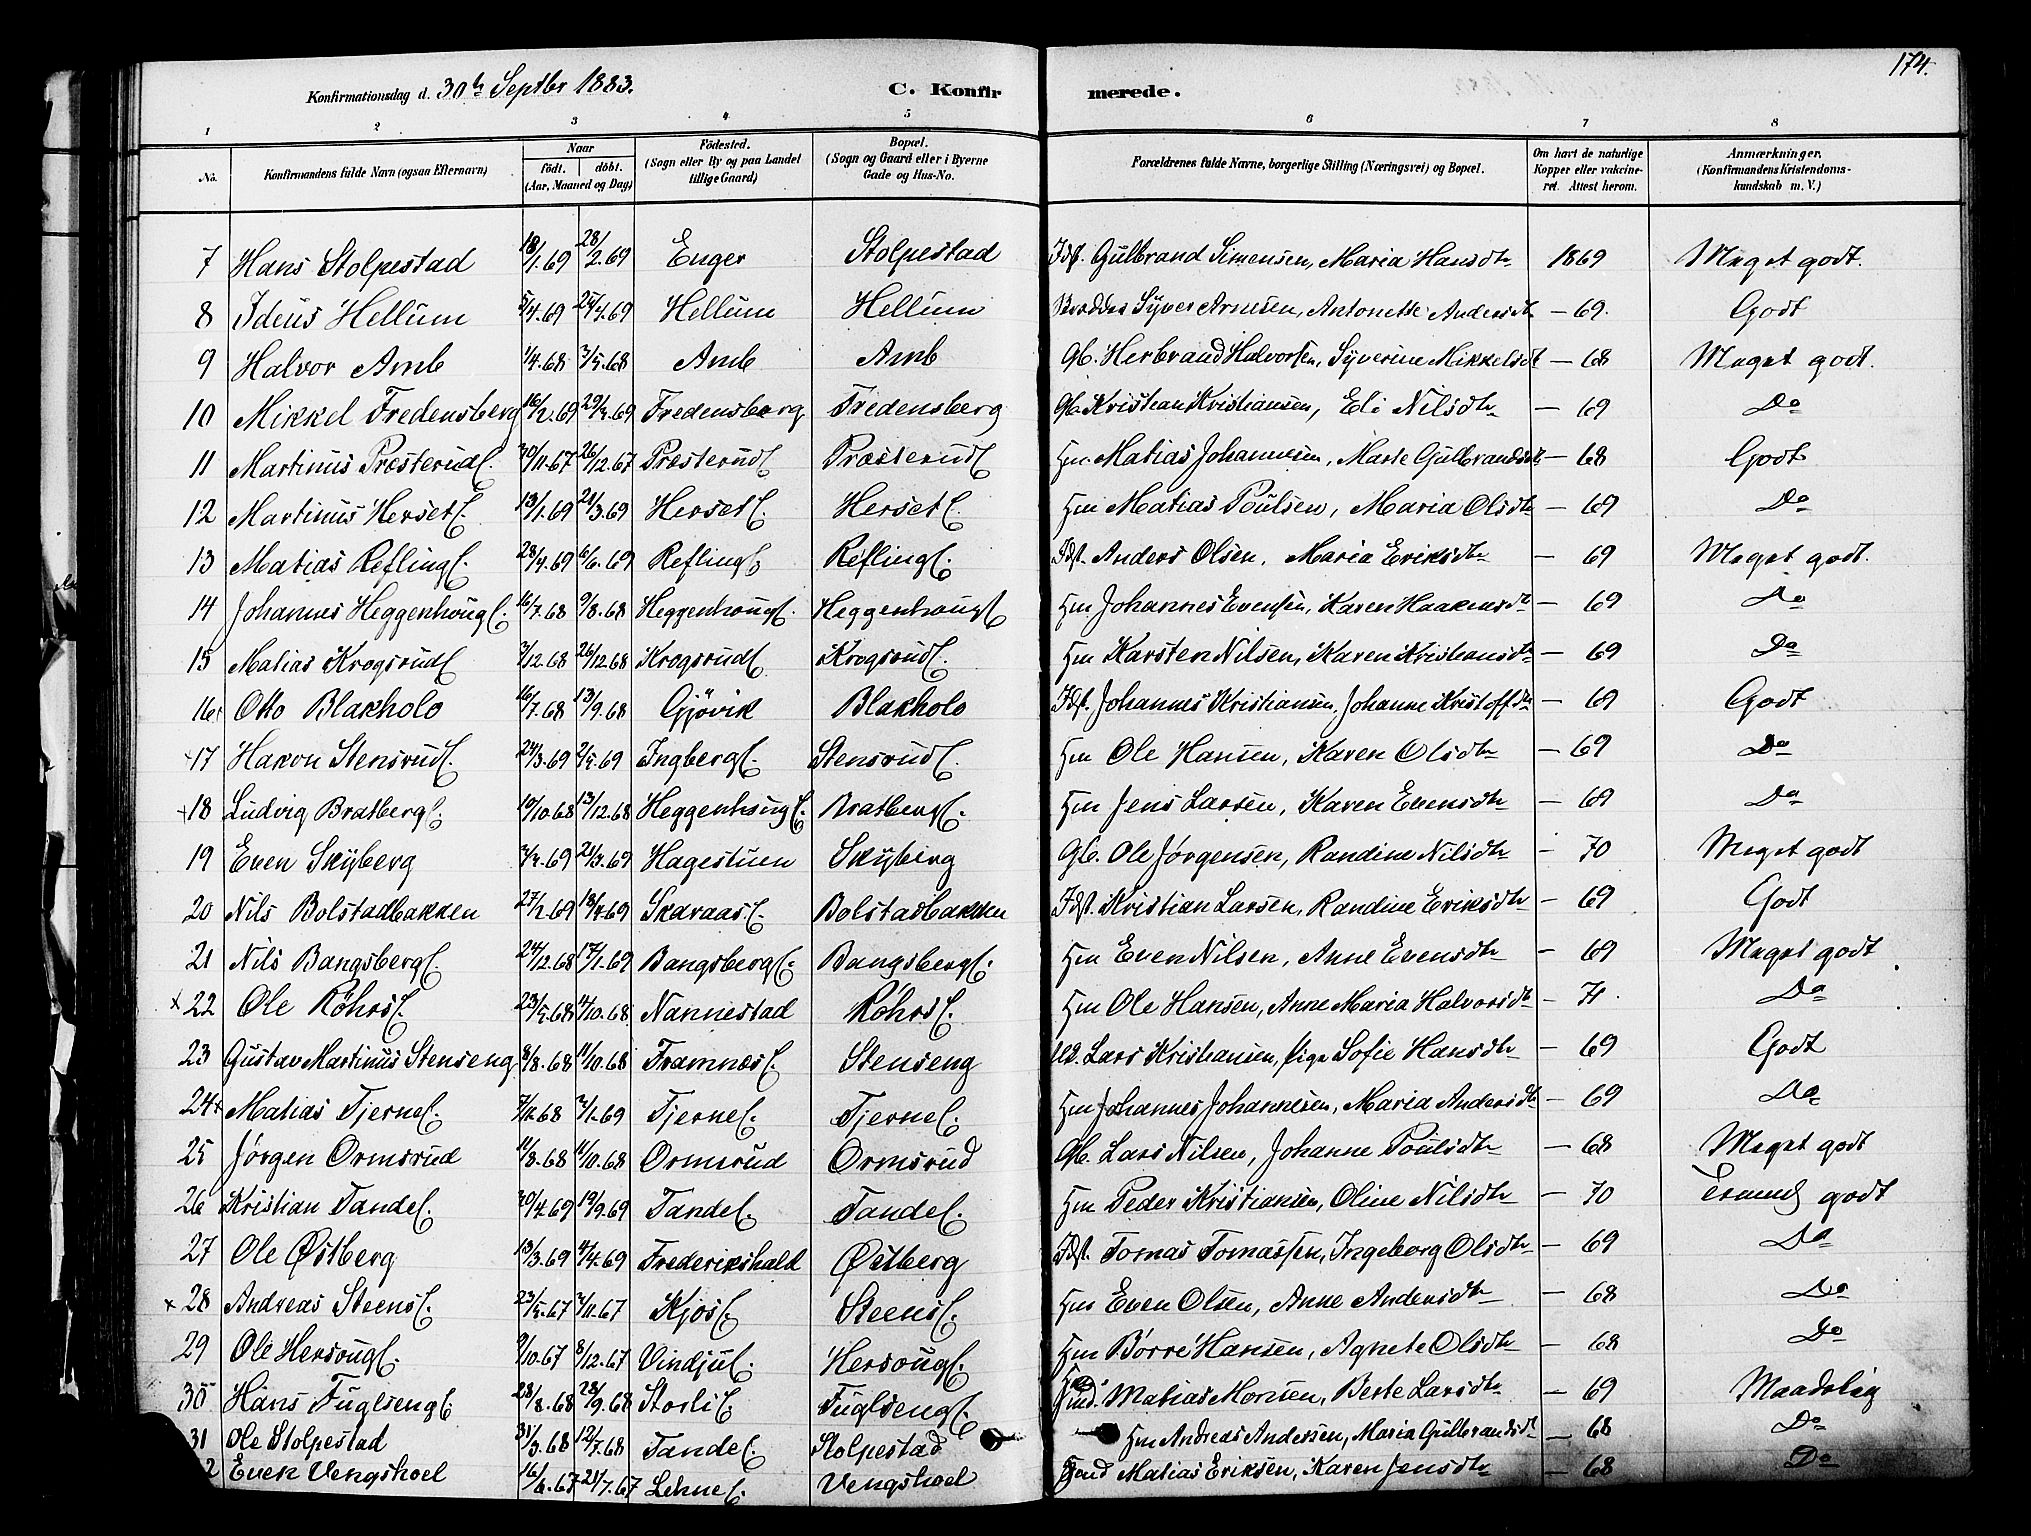 174.
Konfirmationsdag d. 30te Septbr 1883. C. Konfir merede.
1 2 3 4 5 6 7 8
No. Konfirmandens fulde Navn (ogsaa Efternavn) Naar födt. döbt. (Aar, Maaned og Dag) Födested. (Sogn eller By og paa Landet tillige Gaard) Bopæl. (Sogn og Gaard eller i Byerne Gade og Hus-No. Forældrenes fulde Navne, borgerlige Stilling (Næringsvei) og Bopæl. Om havt de naturlige Kopper eller vakcineret. Attest herom. Anmærkninger. (Konfirmandens Kristendomskundskab m. V.)
7 Hans Stolpestad 18/1.69 28/2.69 Enger Stolpestad Idf. Gulbrand Simensen, Maria Hansdtr 1869 Meget godt.
8 Ideus Hellum 5/4.69 25/4.69 Hellum Hellum Syver Arnesen, Antonette Andersdtr — 69. Godt
9 Halvor Amb 1/4.68 3/5.68 Amb Amb Gb. Herbrand Halvorsen, Syverine Mikkelsdt — 68 Meget godt.
10 Mikkel Fredensberg 16/2.69 29/3.69 Fredensborg Fredensberg Gb. Kristian Kristiansen, Eli Nilsdtr — 69 Do
11 Martinus PræsterudE. 30/11.67 26/12.67 PræsterudE PræsterudE Hm. Matias Johannesen, Marte Gulbrandsdtr — 68 Godt
12 Martinus HersetE. 13/1.69 21/3.69 HersetE. HersetE. Hm Matias Poulsen, Maria Olsdtr — 69 Do
13 Matias ReflingE. 28/4.69 6/6.69 ReflingE ReflingE. Idf. Anders Olsen, Maria Eriksdtr — 69 Meget godt.
14 Johannes HeggenhougE. 16/7.68 9/8.68 HeggenhougE. HeggenhougE Hm Johannes Evensen, Karen Haakensdtr — 69 Do
15 Matias KrogsrudE 3/12.68 26/12.68 KrogsrudE KrogsrudE. Hm Karsten Nilsen, Karen Kristiansdtr — 69 Do
16 Otto Blakholo 16/7.68 13/9.68 Gjövik Blakholo Idf. Johannes Kristiansen, Johanne Kristoffdtr — 69 Godt
17 Hakon StensrudE. 24/3.69 2/5.69 IngbergE. StensrudE. Hm Ole Hansen, Karen Olsdtr — 69 Do
+18 Ludvig BratbergE. 19/10.68 13/12.68 HeggenhougE. BratbergE. Hm Jens Larsen, Karen Evensdtr — 69 Do
19 Even Skyberg 21/3.69 Hagestuen Skyberg Gb. Ole Jørgensen, Randine Nilsdtr — 70 Meget godt
20 Nils Bolstadbakken 27/2.69 18/4.69 SkaraasE. Bolstadbakken Idf. Kristian Larsen, Randine Eriksdtr — 69 Godt
21 Nils BangsbergE. 24/12.68 17/1.69 BangsbergE. BangsbergE. Hm Even Nilsen, Anne Evensdtr — 69 Meget godt
x 22 Ole RöhrsE. 23/5.68 4/10.68 Nannestad RöhrsE. Hm Ole Hansen, Anne Maria Halvorsdtr — 71. Do
23 Gustav Martinus Stenseng 8/8.68 11/10.68 FramnæsE. Stenseng Lars Kristiansen, Pige Sofie Hansdtr — 69 Godt
24x Matias TjerneE. 7/12.68 2/1.69 TjerneE. TjerneE. Hm Johannes Johannesen, Maria Andersdtr — 69 Do
25 Jörgen Ormsrud 11/8.68 11/10.68 Ormsrud Ormsrud Gb. Lars Nilsen, Johanne Poulsdtr — 68 Meget godt
26 Kristian TandeE. 30/4.69 19/9.69 TandeE. TandeE. Hm Peder Kristiansen, Oline Nilsdtr — 70 godt
27 Ole Østberg 13/3.69 4/4.69 Frederikshald Østberg Idf. Tomas Tomassen, Ingeborg Olsdtr — 69 Do
x 28 Andreas SteensE. 23/5.67 3/11.67 KjosE. SteensE. Hm Even Olsen, Anne Andersdtr — 68 Do
29 Ole HersougE. 9/10.67 8/12.67 VindjuE. HersougE. Hm Börre Hansen, Agnete Olsdtr — 68 Do
30 Hans FuglsengE. 28/8.68 28/9.68 StorliE. FuglsengE. Matias Monsen, Berte Larsdtr — 69 Maadelig
31 Ole Stolpestad 31/3.68 12/7.68 TandeE. Stolpestad Hm Andreas Andersen, Maria Gulbrandsdt — 68 Do
2 Even Vengshoel 16/6.67 21/7.67 LehneE. Vengshoel Matias Eriksen, Karen Jensdtr — 68 Do